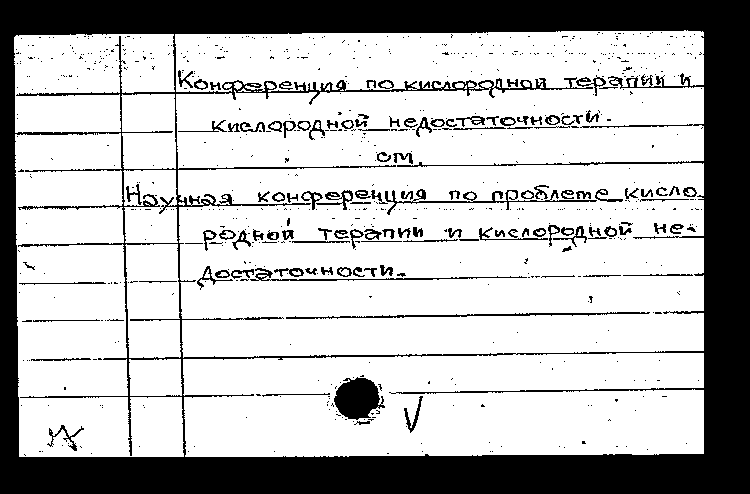 Конференция по кислородной терапии и
кислородной недостаточности.
см.
Научная конференция по проблеме кисло
родной терапии и кислородной не-
достаточности.
V